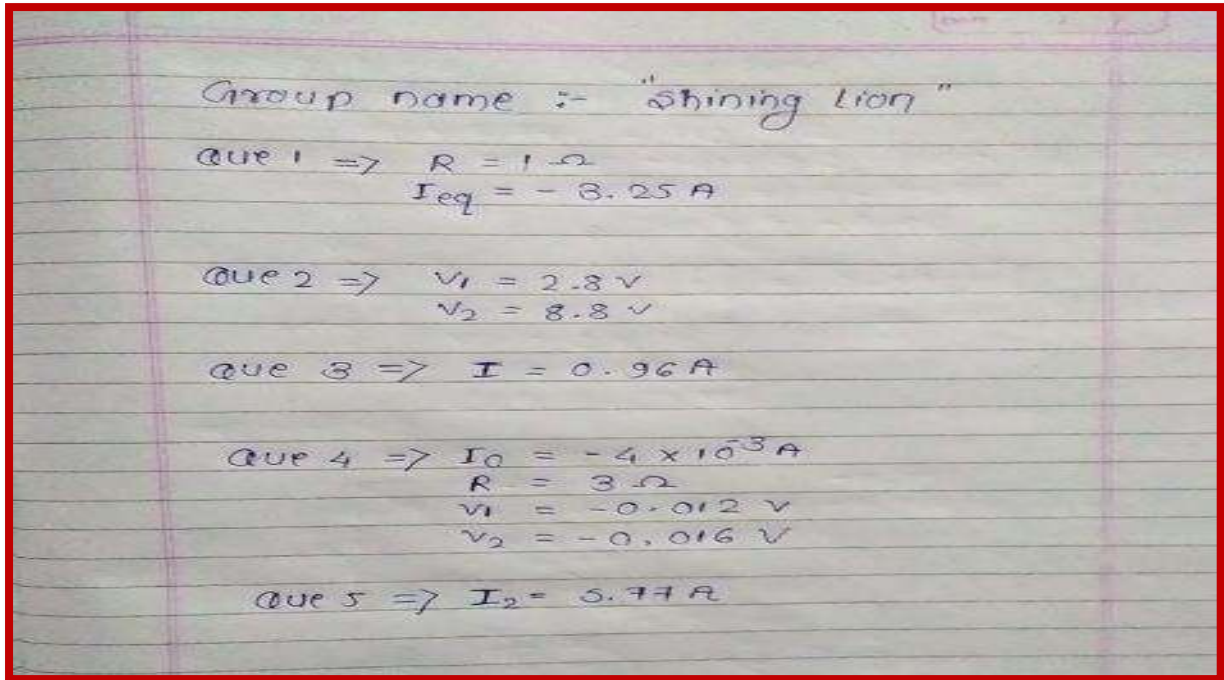 Group name :- "Shining Lion"
Que 1 => R = 1 Ω
Ieq = - 3.25 A
Que 2 => V1 = 2.8 V
V2 = 8.8 V
Que 3 => I = 0.96 A
Que 4 => I0 = - 4 × 10⁻³ A
R = 3 Ω
V1 = - 0.012 V
V2 = - 0.016 V
Que 5 => I2 = 5.77 A